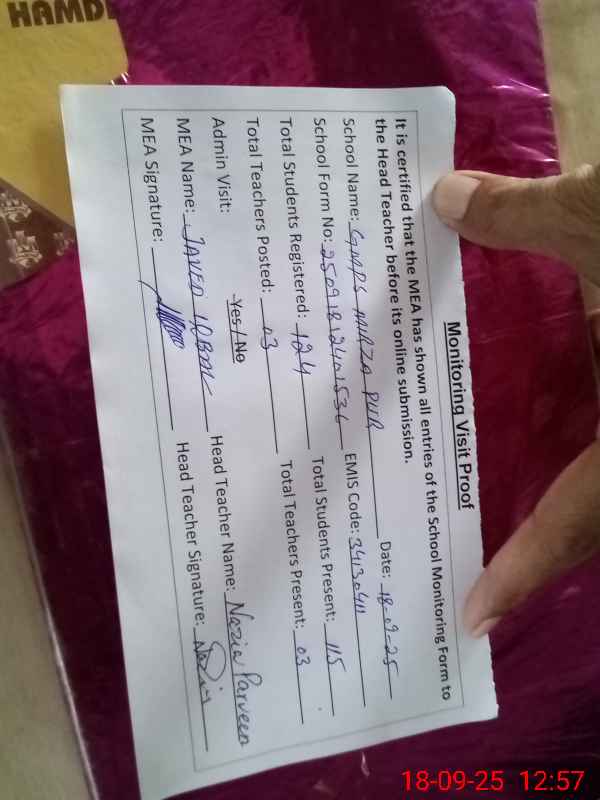 HAMD
Monitoring Visit Proof
It is certified that the MEA has shown all entries of the School Monitoring Form to
the Head Teacher before its online submission.
Date: 18-09-25
School Name: GMPS MIRZA PUR
EMIS Code: 34130411
School Form No: 25091812401536
Total Students Registered: 124 Total Students Present: 115
Total Teachers Posted: 03 Total Teachers Present: 03
Admin Visit: Yes / No
MEA Name: JAVED IQBAL Head Teacher Name: Nazia Parveen
MEA Signature: Head Teacher Signature: Nazia
18-09-25 12:57